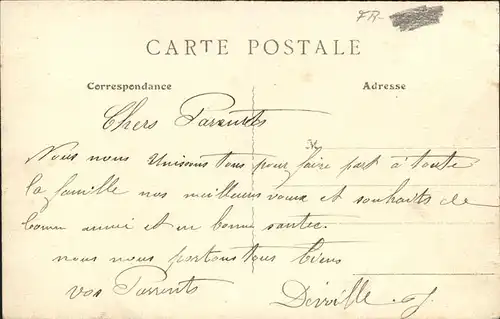 FR-
CARTE POSTALE
Correspondance
Adresse
Chers Parents
Nous nous Unisons tous pour faire part à toute
la famille nos meilleurs vœux et souhaits de
bonne anné et en bonne santer.
nous nous portons tous bien
vos Parrents Derville